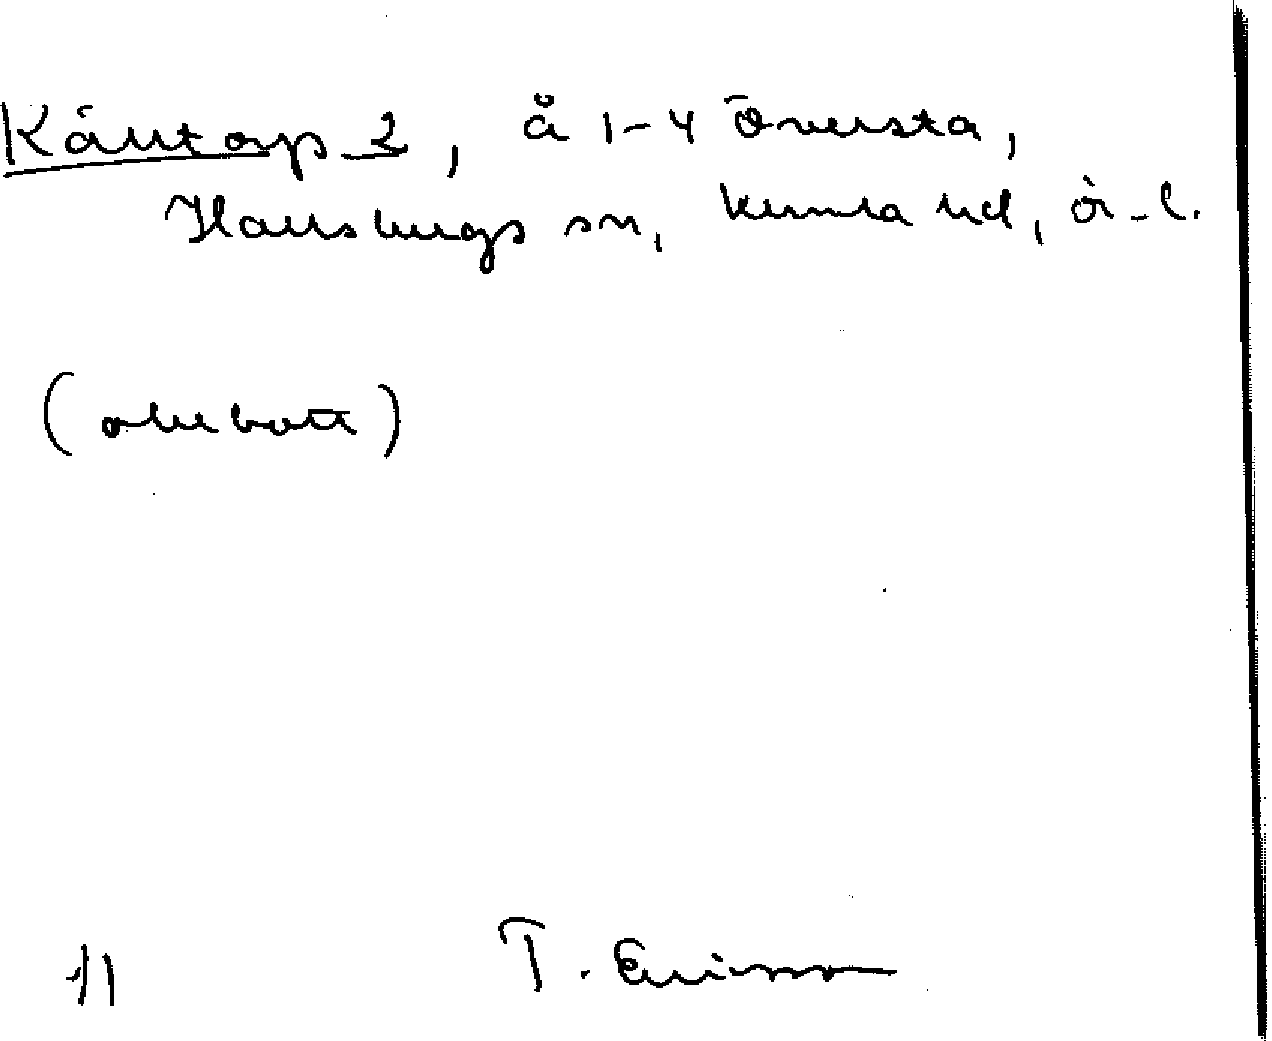 Källtorp 2, å 1-4 Översta,
Hallsbergs sn, Kumla hd, Ör. l.
(obebott)
11
T. Ericsson